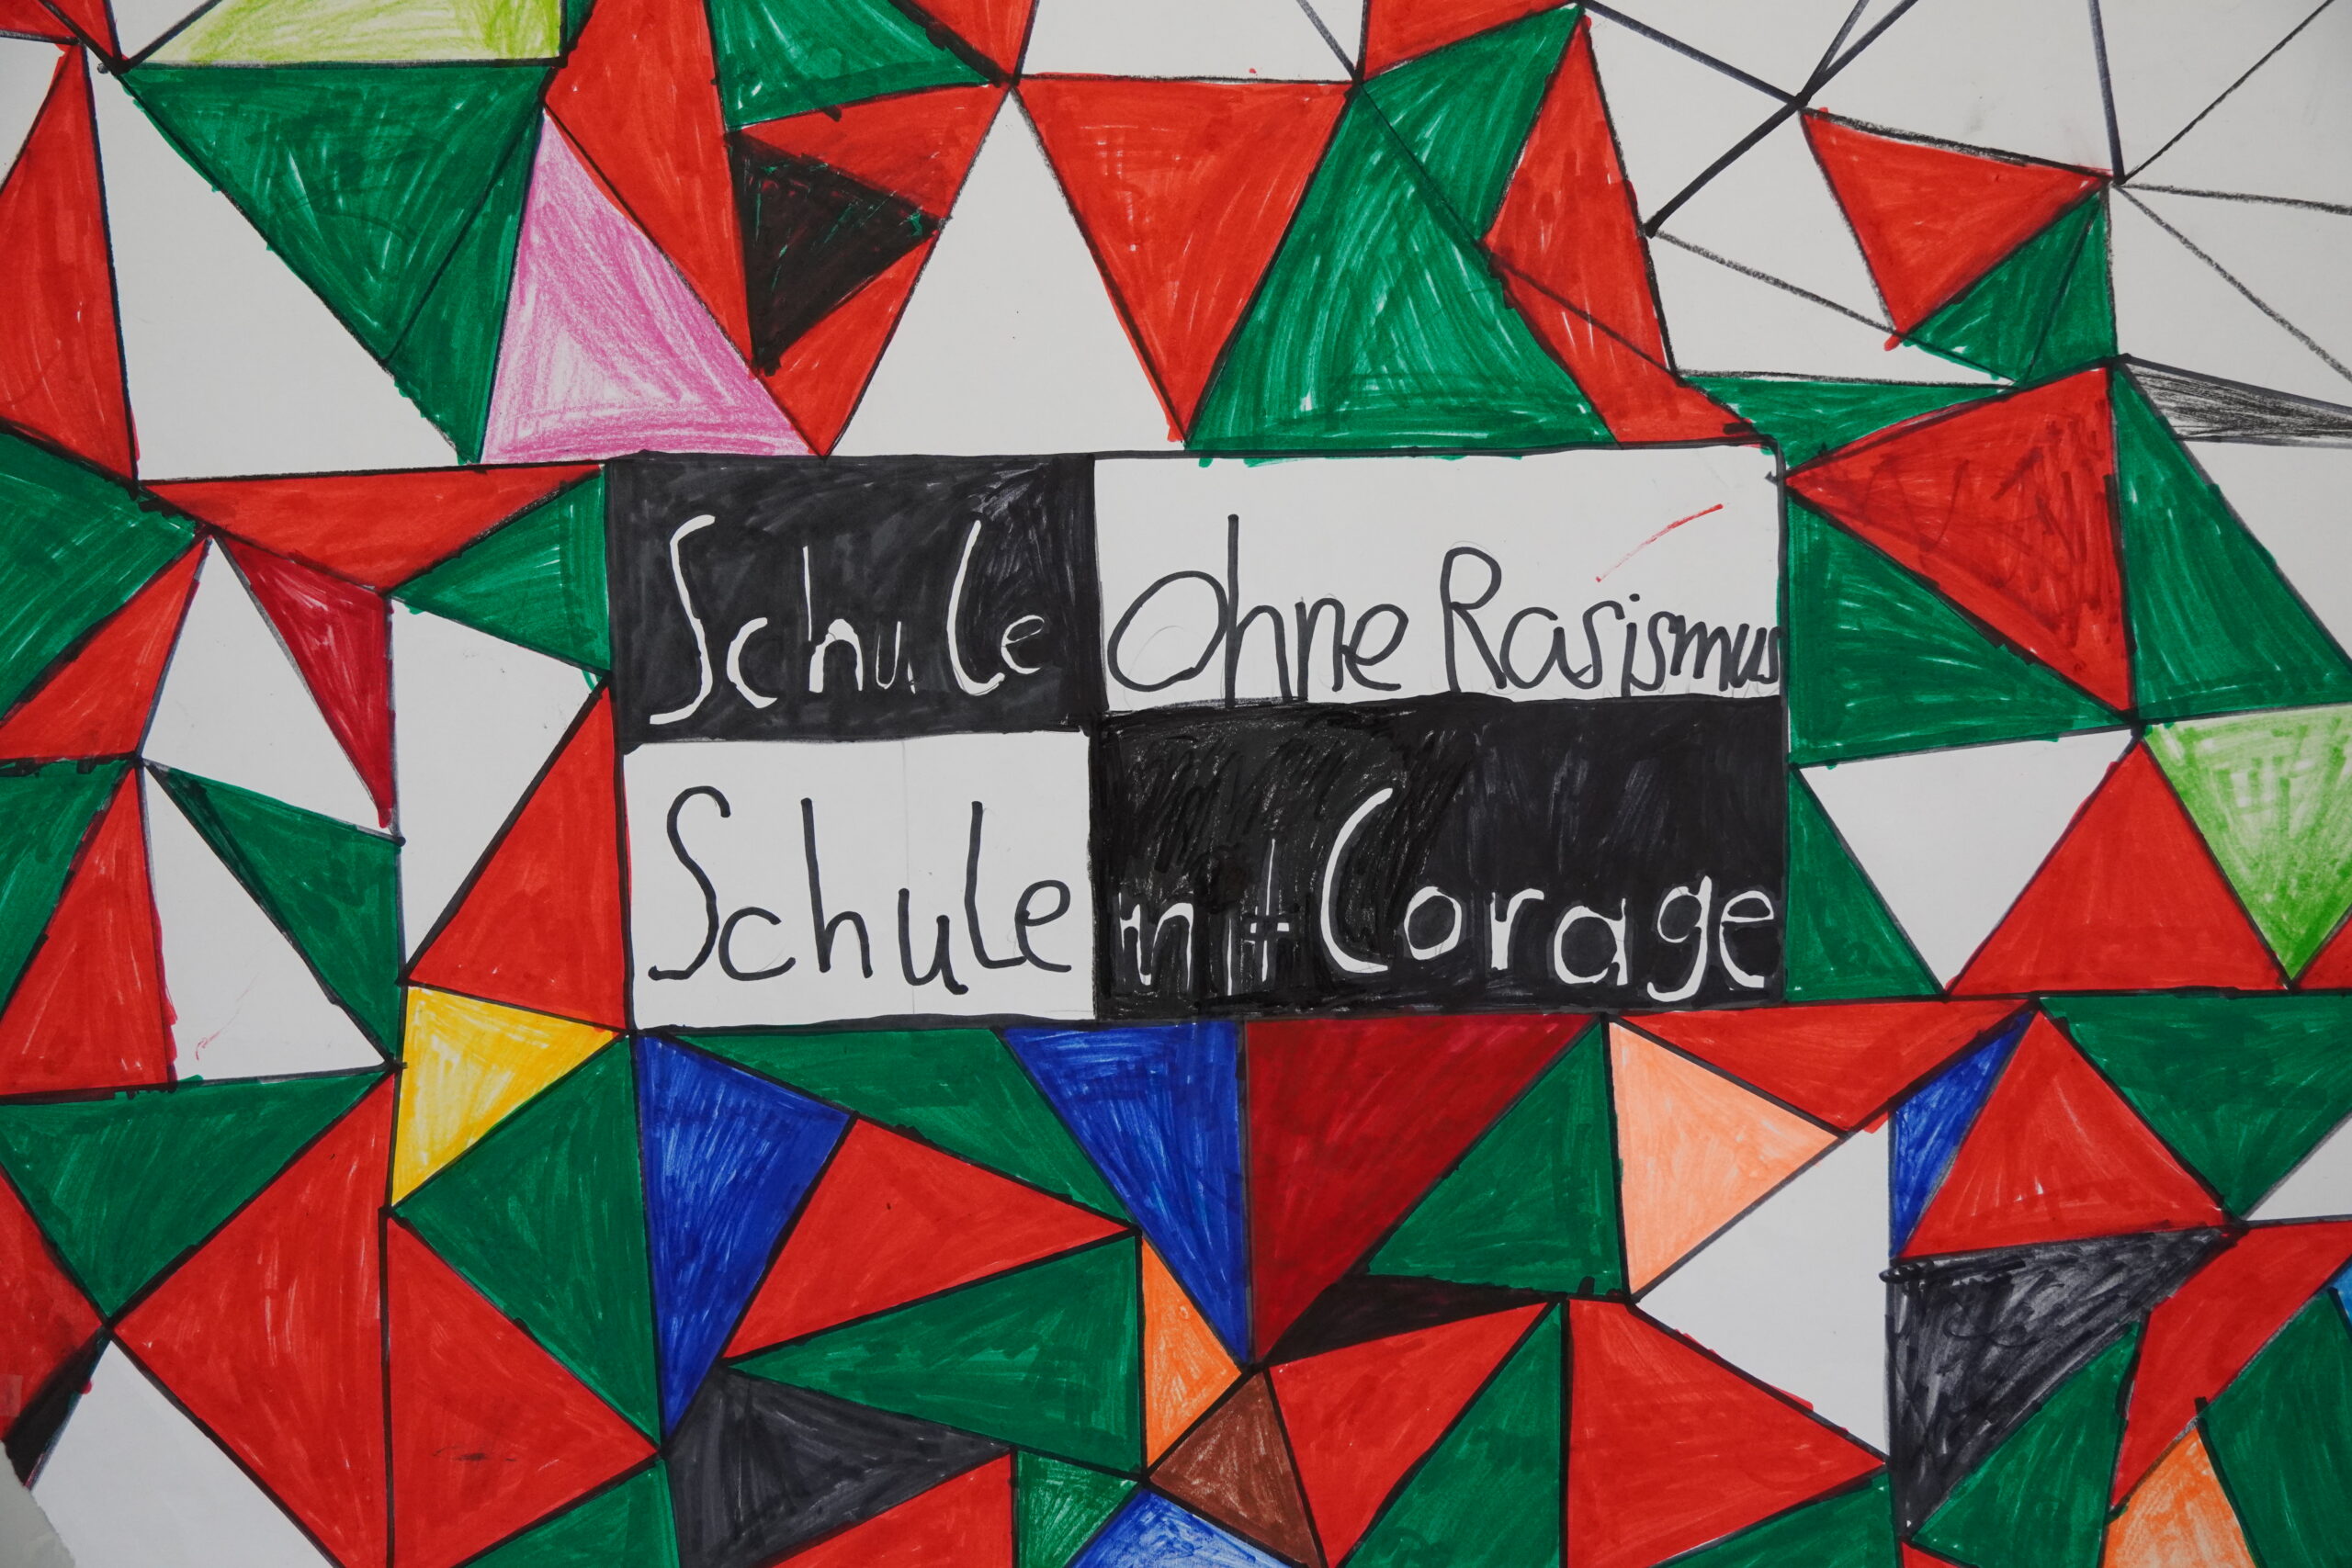 Schule Ohne Rasismus
Schule mit Corage